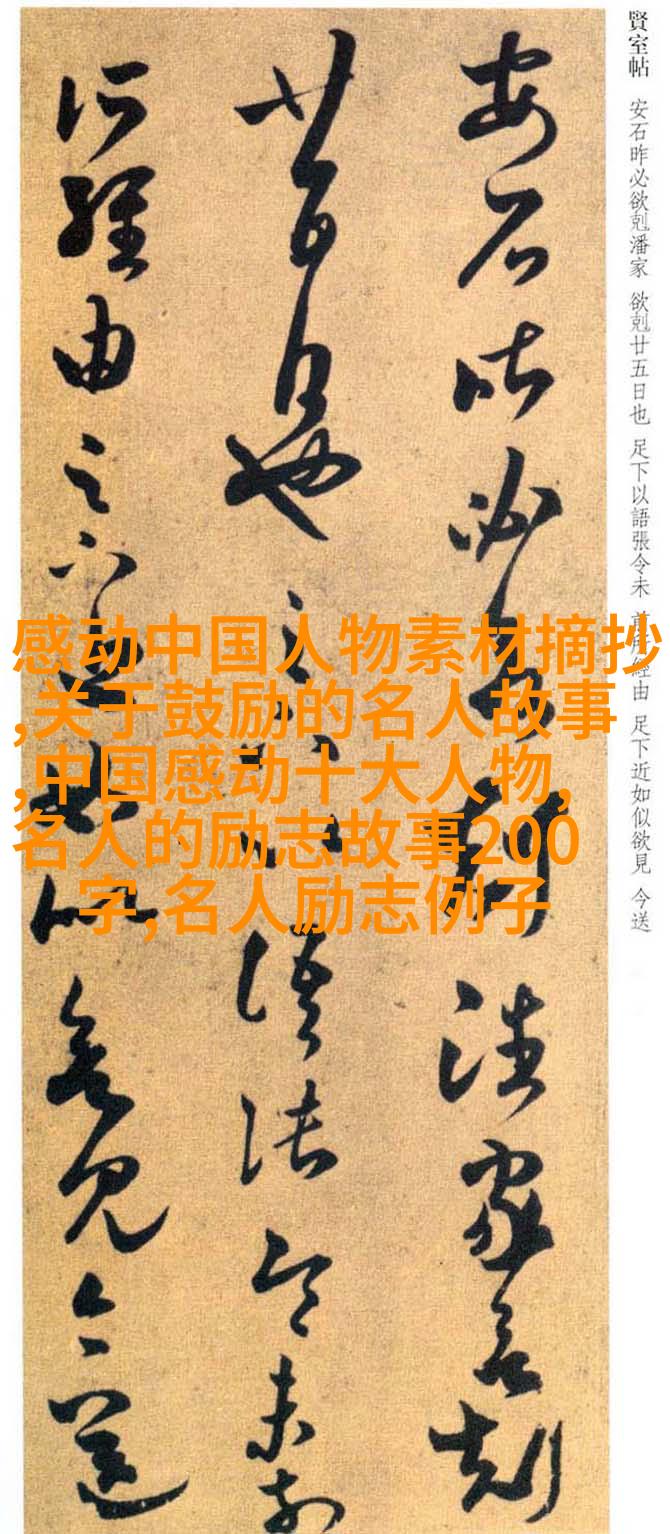 賢室帖 安石昨必欲剋潘家 欲剋廿五日也 足下以語張令未 前所經由 足下近如似欲見 今送
安石昨必欲剋潘家欲剋
廿五日也足下以語張令未前
所經由足下近如似欲見今送
感动中国人物素材摘抄
,关于鼓励的名人故事
,中国感动十大人物,
名人的励志故事200
字,名人励志例子